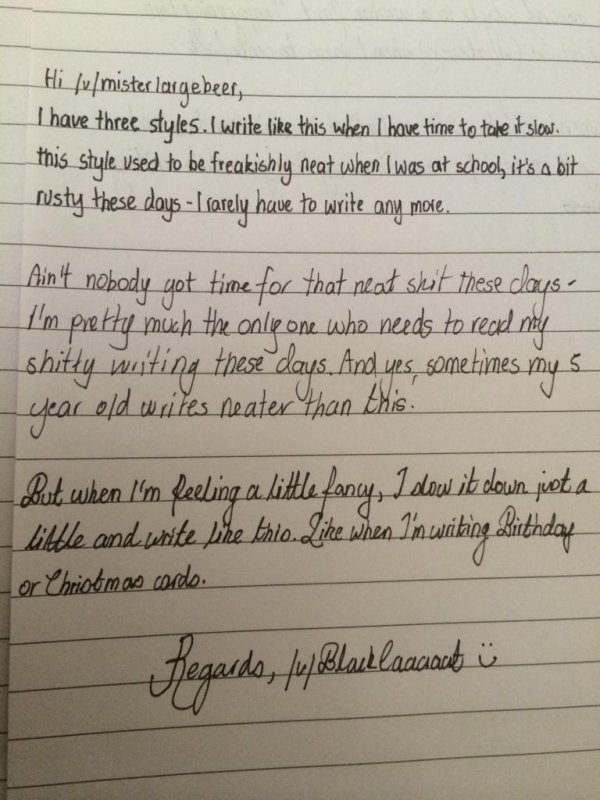 Hi /u/misterlargebeer,
I have three styles. I write like this when I have time to take it slow.
this style used to be freakishly neat when I was at school, it's a bit
rusty these days - I rarely have to write any more.
Ain't nobody got time for that neat shit these days -
I'm pretty much the only one who needs to read my
shitty writing these days. And yes, sometimes my 5
year old writes neater than this.
But when I'm feeling a little fancy, I slow it down just a
little and write like this. Like when I'm writing Birthday
or Christmas cards.
Regards, /u/Blacklaaaaat ü